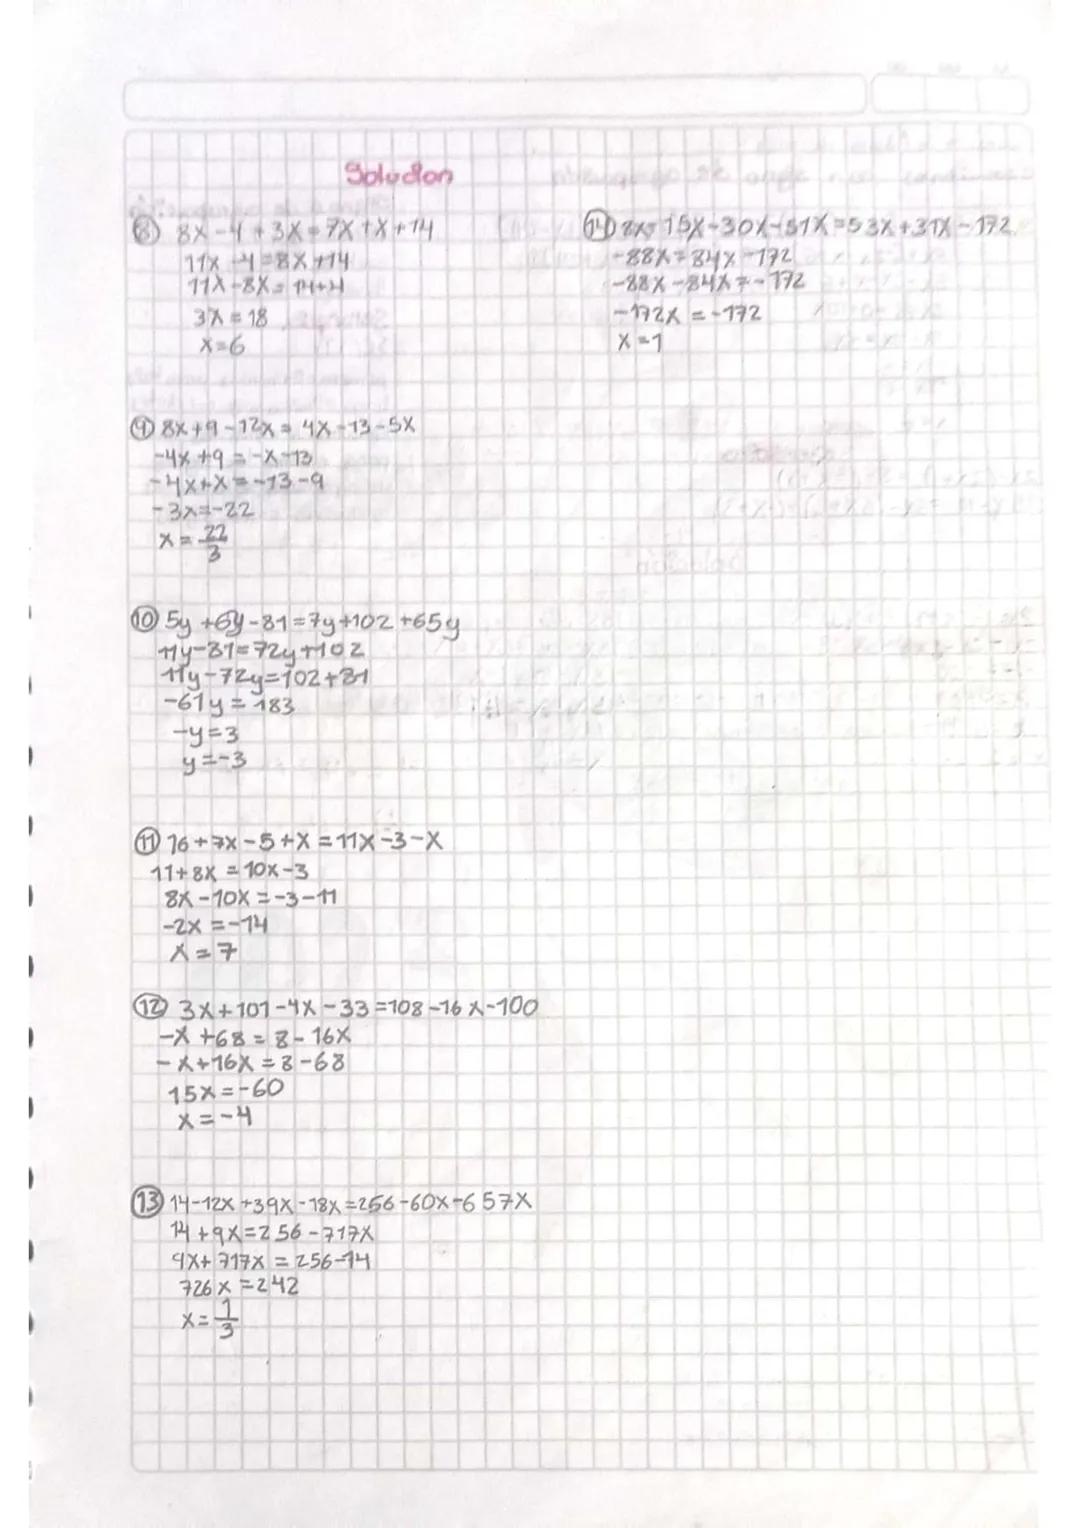 Solucion
⑧ 8X-4+3X=7X+X+14
11X-4=8X+14
11X-8X=14+4
3X=18
X=6
⑨ 8X+9-12X=4X-13-5X
-4X+9=-X-13
-4X+X=-13-9
-3X=-22
X=22/3
⑩ 5y+6y-81=7y+102+65y
11y-81=72y+102
11y-72y=102+81
-61y=183
-y=3
y=-3
⑪ 16+7X-5+X=11X-3-X
11+8X=10X-3
8X-10X=-3-11
-2X=-14
X=7
⑫ 3X+101-4X-33=108-16X-100
-X+68=8-16X
-X+16X=8-68
15X=-60
X=-4
⑬ 14-12X+39X-18X=256-60X-657X
14+9X=256-717X
9X+717X=256-14
726X=242
X=1/3
⑭ 8X-15X-30X-51X=53X+31X-172
-88X=84X-172
-88X-84X=-172
-172X=-172
X=1